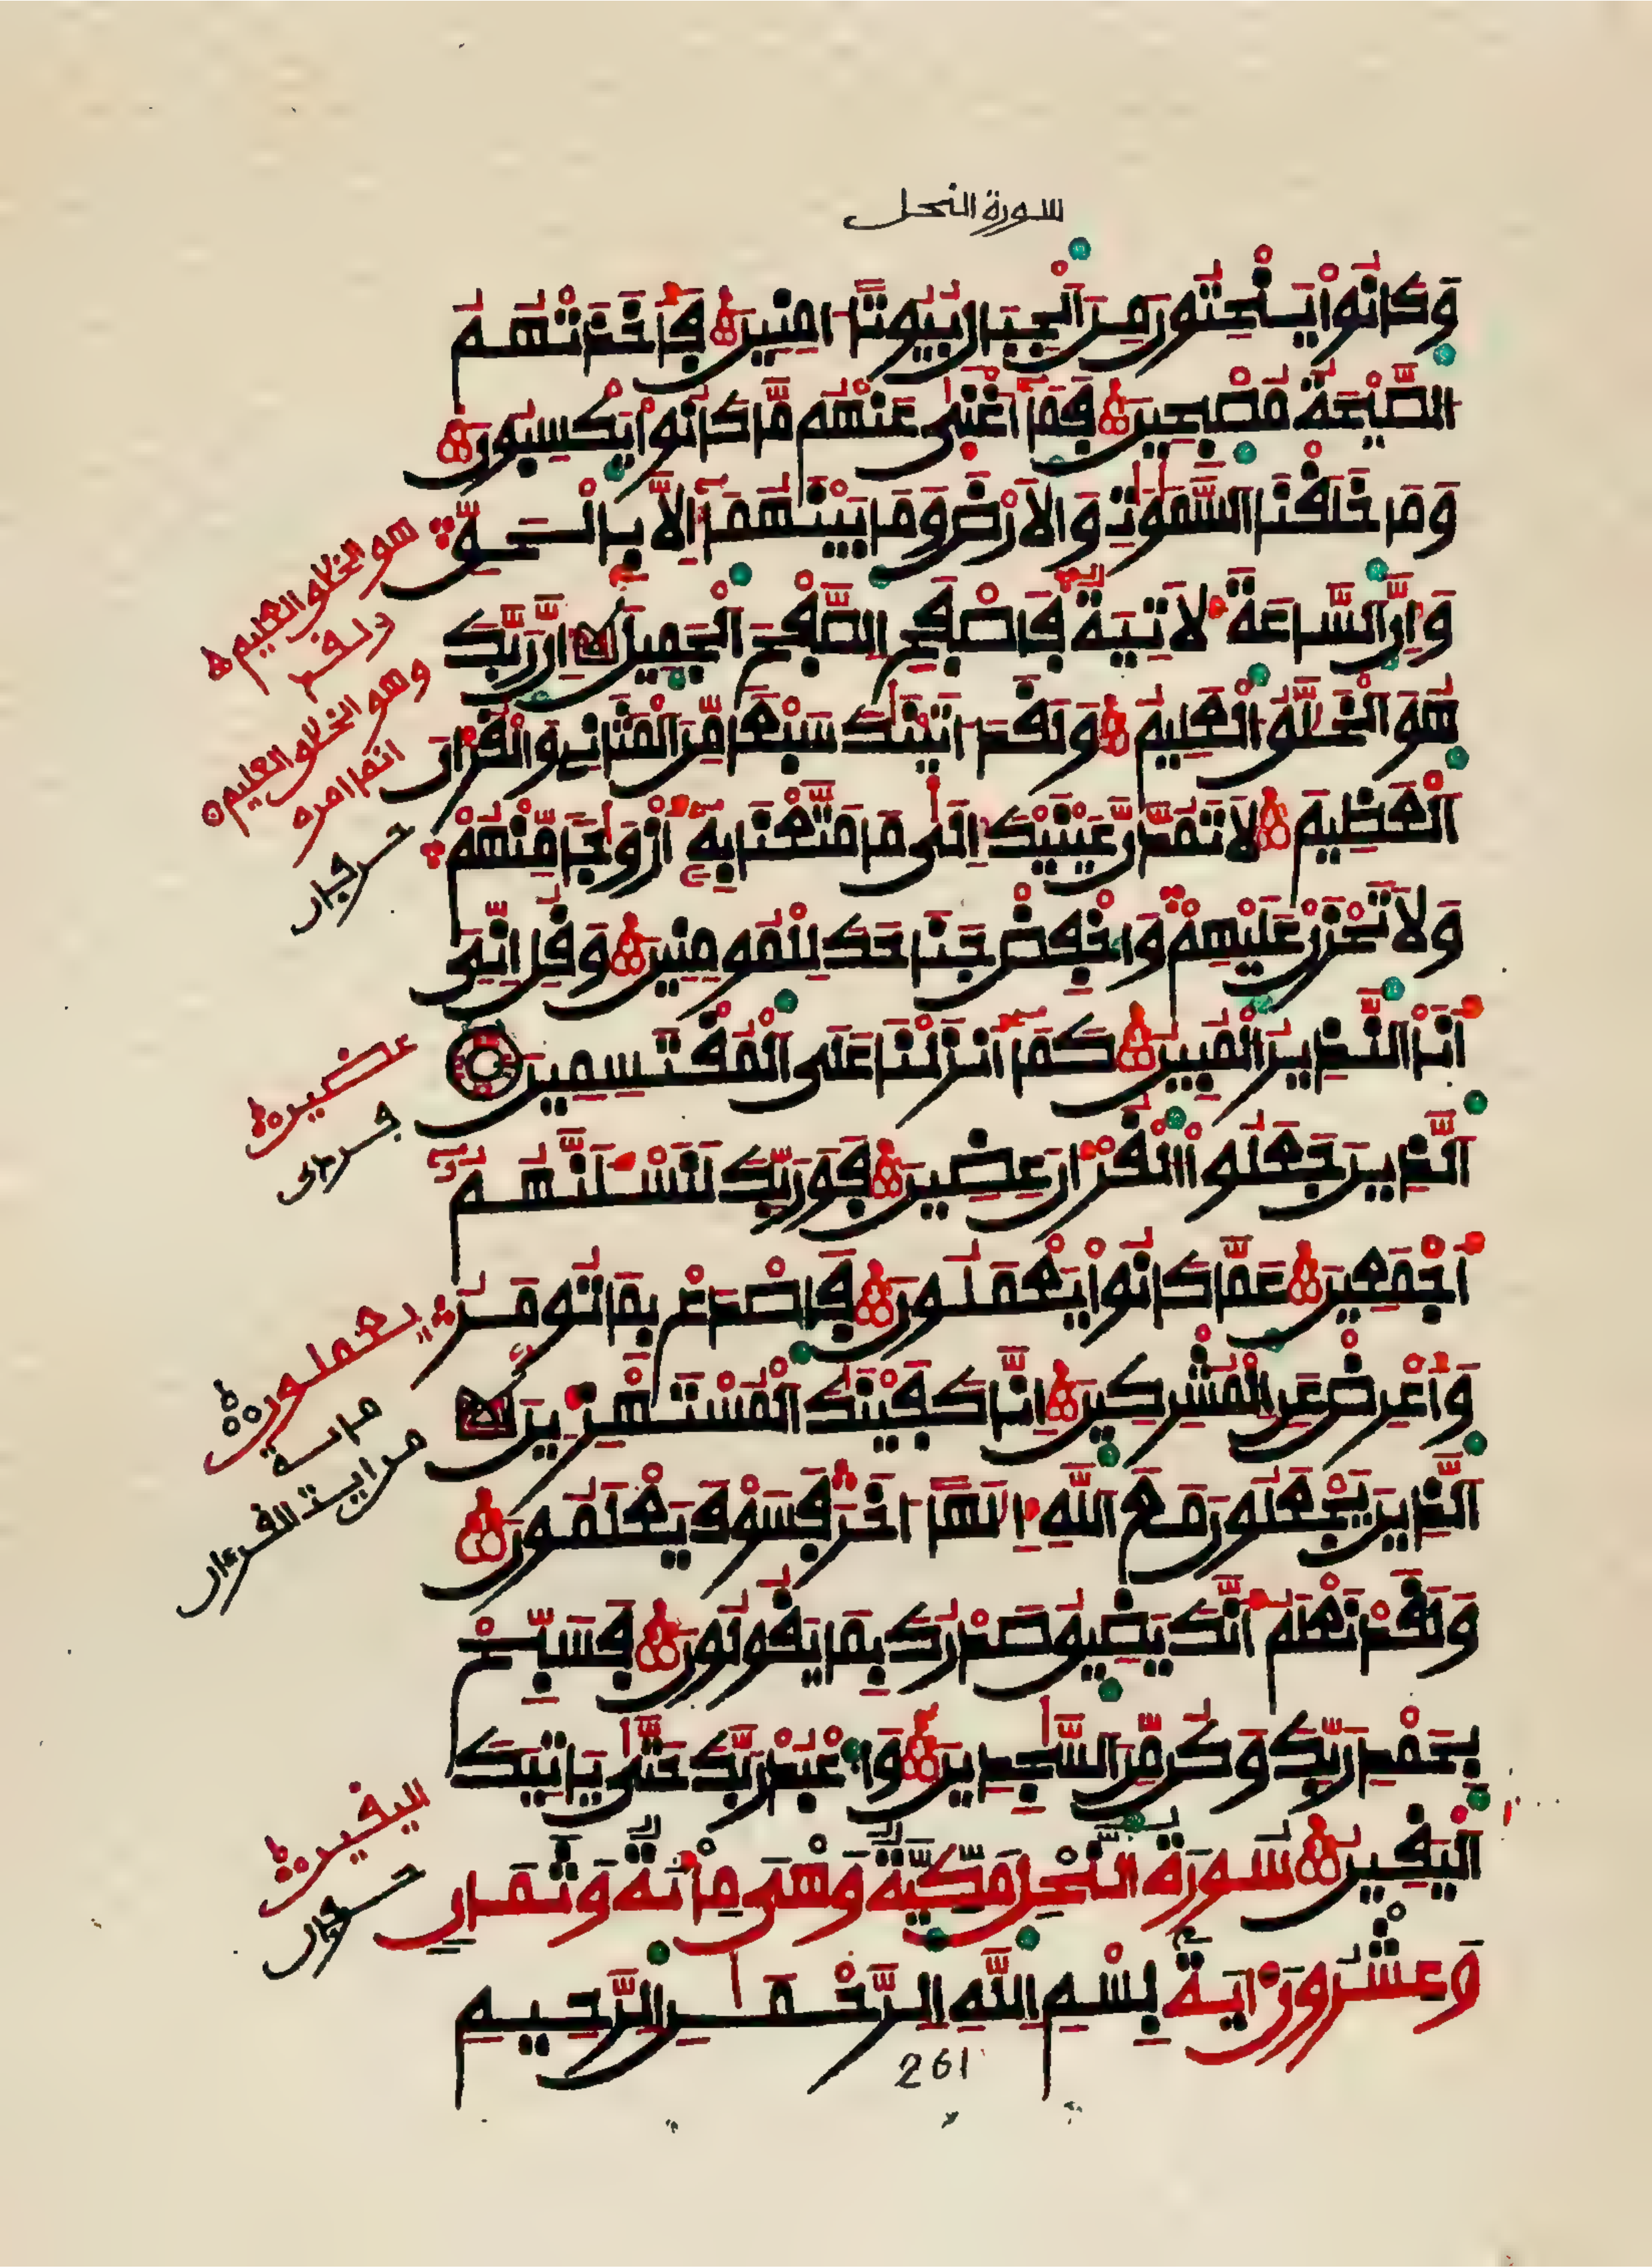 سورة النحل
وَكَانُواْ يَنْحِتُونَ مِنَ اَ۬لْجِبَالِ بُيُوتاً اٰمِنِينَ فَأَخَذَتْهُمُ
اُ۬لصَّيْحَةُ مُصْبِحِينَ فَمَآ أَغْنٰى عَنْهُم مَّا كَانُواْ يَكْسِبُونَ
وَمَا خَلَقْنَا اَ۬لسَّمَٰوَٰتِ وَالَارْضَ وَمَا بَيْنَهُمَآ إِلَّا بِالْحَقِّ
وَإِنَّ اَ۬لسَّاعَةَ لَأتِيَةٌ فَاصْفَحِ اِ۬لصَّفْحَ اَ۬لْجَمِيلَ إِنَّ رَبَّكَ
هُوَ اَ۬لْخَلَّٰقُ اُ۬لْعَلِيمُ وَلَقَدَ اٰتَيْنَٰكَ سَبْعاً مِّنَ اَ۬لْمَثَانِے وَالْقُرْءَانَ
اَ۬لْعَظِيمَ لَا تَمُدَّنَّ عَيْنَيْكَ إِلَىٰ مَا مَتَّعْنَا بِهِۦٓ أَزْوَٰجاً مِّنْهُمْ
وَلَا تَحْزَنْ عَلَيْهِمْ وَاخْفِضْ جَنَاحَكَ لِلْمُومِنِينَ وَقُلِ اِنِّىَ
أَنَا اَ۬لنَّذِيرُ اُ۬لْمُبِينُ كَمَآ أَنزَلْنَا عَلَى اَ۬لْمُقْتَسِمِينَ
اَ۬لذِينَ جَعَلُواْ اُ۬لْقُرْءَانَ عِضِينَ فَوَرَبِّكَ لَنَسْـَٔلَنَّهُمُۥٓ
أَجْمَعِينَ عَمَّا كَانُواْ يَعْمَلُونَ فَاصْدَعْ بِمَا تُومَرُ
وَأَعْرِضْ عَنِ اِ۬لْمُشْرِكِينَ إِنَّا كَفَيْنَٰكَ اَ۬لْمُسْتَهْزِءِينَ
اَ۬لذِينَ يَجْعَلُونَ مَعَ اَ۬للَّهِ إِلَٰهاً اٰخَرَ فَسَوْفَ يَعْلَمُونَ
وَلَقَدْ نَعْلَمُ أَنَّكَ يَضِيقُ صَدْرُكَ بِمَا يَقُولُونَ فَسَبِّحْ
بِحَمْدِ رَبِّكَ وَكُن مِّنَ اَ۬لسَّٰجِدِينَ وَاعْبُدْ رَبَّكَ حَتَّىٰ يَاتِيَكَ
اَ۬لْيَقِينُ سُورَةُ النَّحْلِ مَكِّيَّةٌ وَهْىَ مِائَةٌ وَثَمَانٍ
وَعِشْرُونَ ءَايَةً بِسْمِ اِ۬للَّهِ اِ۬لرَّحْمَٰنِ اِ۬لرَّحِيمِ
261
هو الخلاق العليم
ولقد
وهو الخلاق العليم
انما امره
عضين
يعملون
اليقين